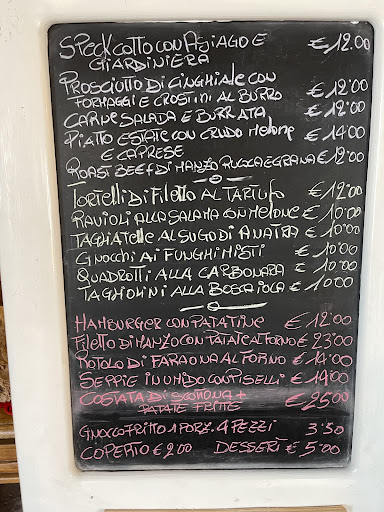 SPECK COTTO CON ASIAGO E € 12.00
GIARDINIERA
PROSCIUTTO DI CINGHIALE CON € 12'00
FORMAGGI E CROSTINI AL BURRO
CARNE SALADA E BURRATA € 12'00
PIATTO ESTATE CON CRUDO MELONE € 14'00
E CAPRESE
ROAST BEEF DI MANZO RUCOLA E GRANA € 12'00
TORTELLI DI FILETTO AL TARTUFO € 12'00
RAVIOLI ALLA SALAMA CON MELONE € 10'00
TAGLIATELLE AL SUGO DI ANATRA € 10'00
GNOCCHI AI FUNGHI MISTI € 10'00
QUADROTTI ALLA CARBONARA € 10'00
TAGLIOLINI ALLA BOSCAIOLA € 10'00
HAMBURGER CON PATATINE € 12'00
FILETTO DI MANZO CON PATATE AL FORNO € 23'00
ROTOLO DI FARAONA AL FORNO € 14'00
SEPPIE IN UMIDO CON PISELLI € 14'00
COSTATA DI SCOTTONA + € 25'00
PATATE FRITTE
GNOCCO FRITTO 1 PORZ. 4 PEZZI 3'50
COPERTO € 2'00 DESSERT € 5'00